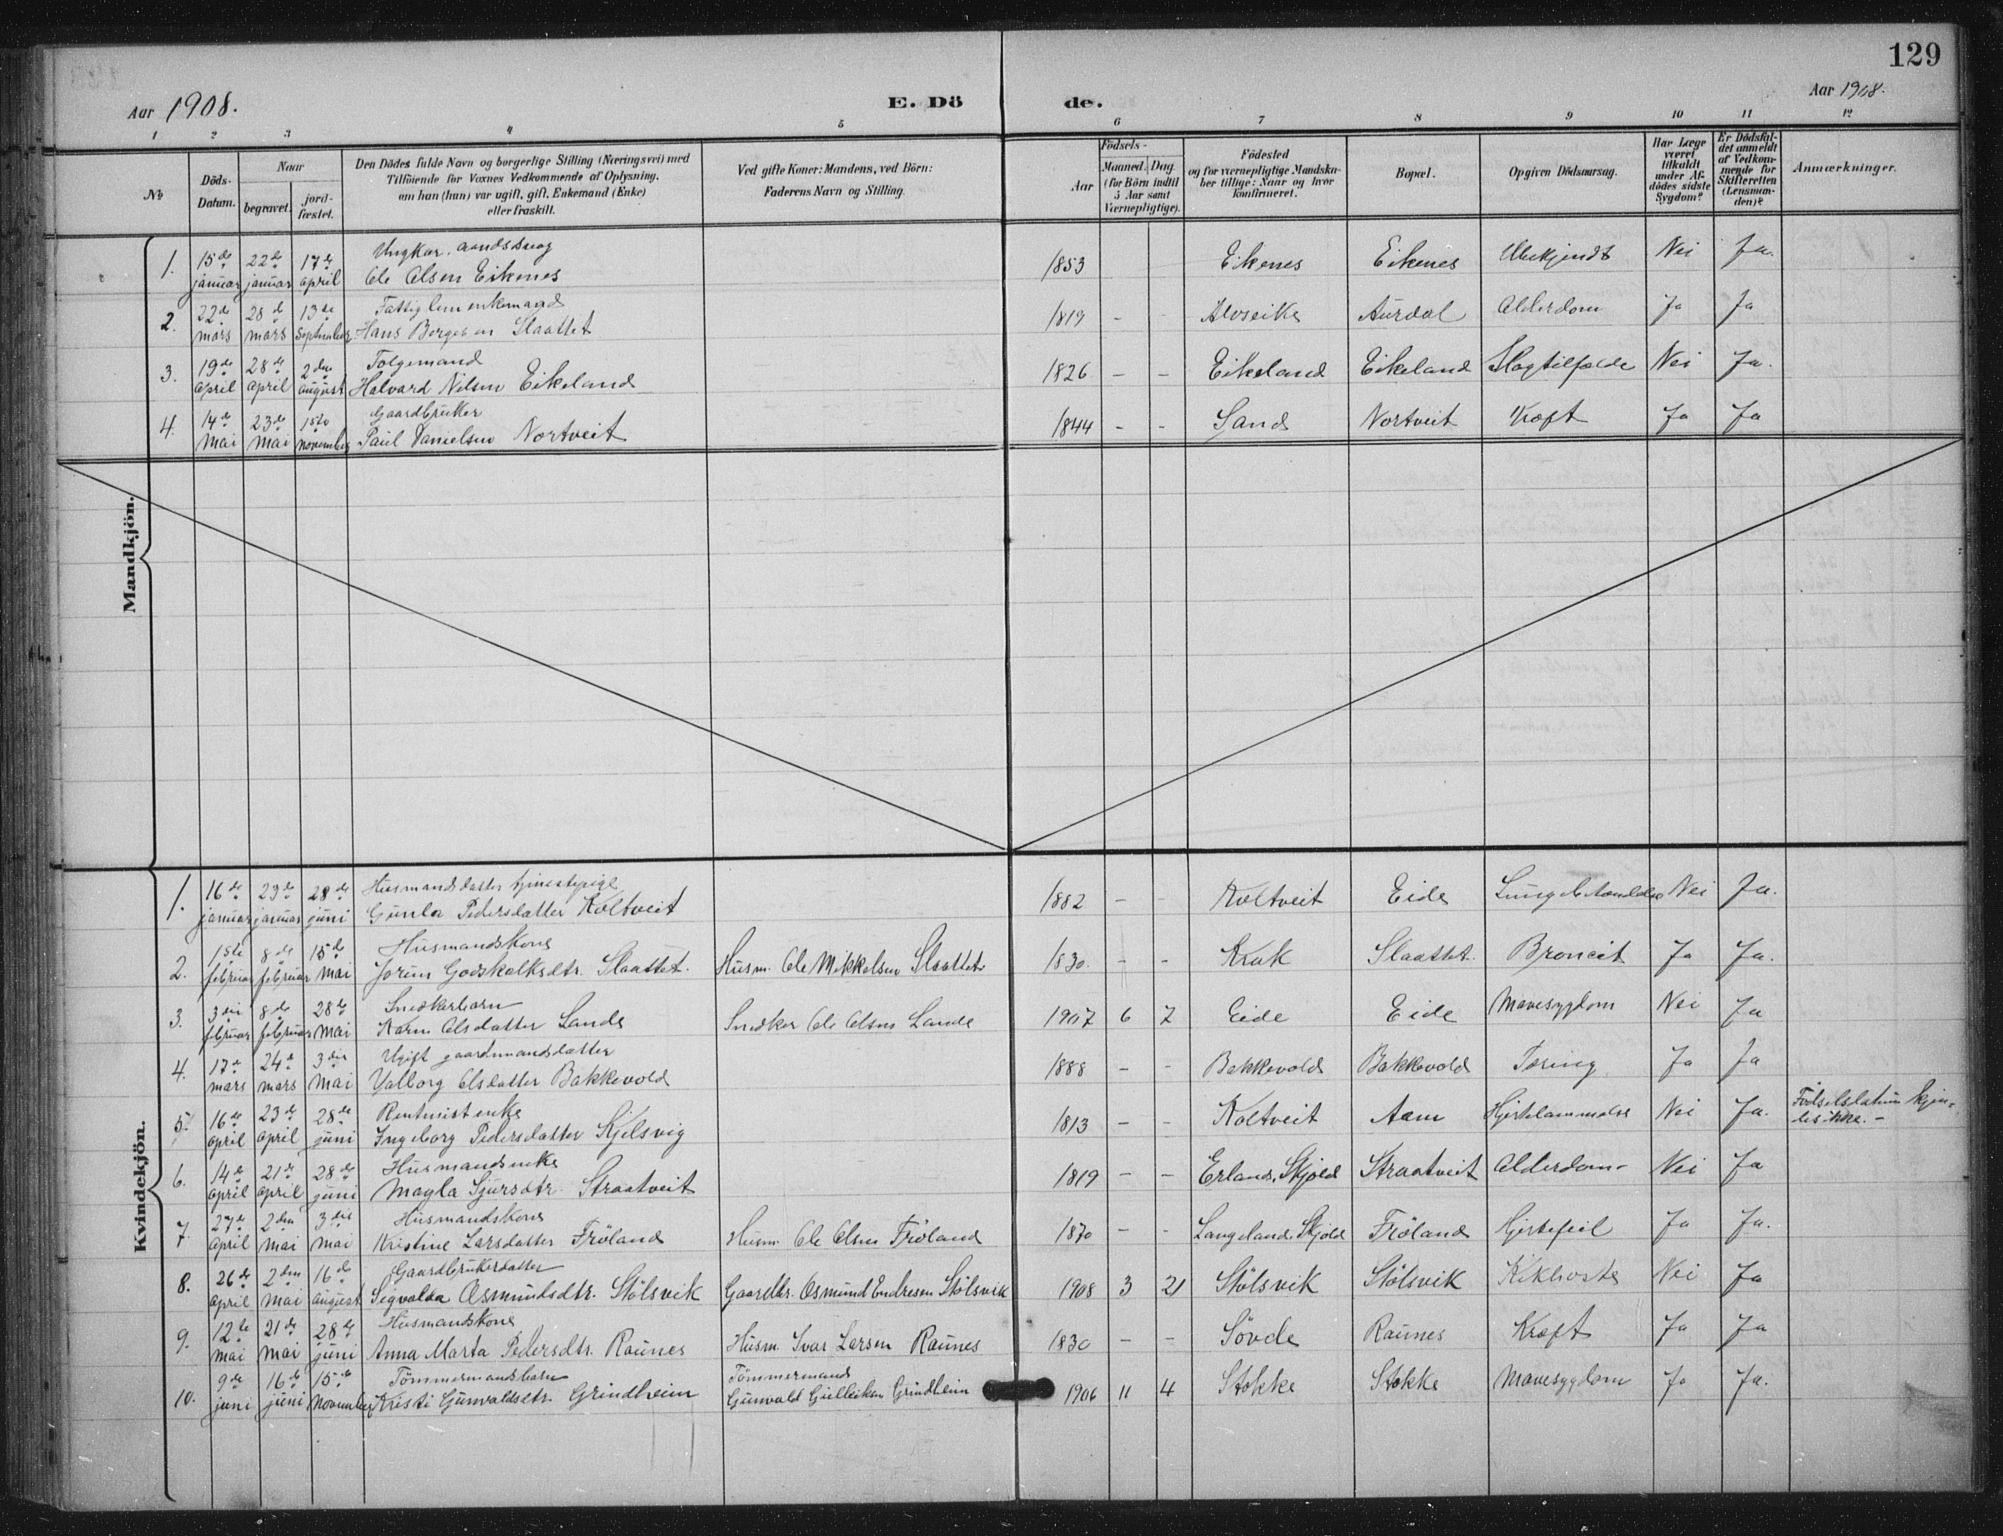 129
Aar 1908.
E. Dö de.
Aar 1908.
1 2 3 4 5 6 7 8 9 10 11 12
No
Döds-Datum.
Naar
begravet.
jord-fæstet.
Den Dödes fulde Navn og borgerlige Stilling (Næringsvei) med
Tilföiende for Voxnes Vedkommende af Oplysning.
om han (hun) var ugift, gift, Enkemand (Enke)
eller fraskilt.
Ved gifte Koner: Mandens, ved Börn:
Faderens Navn og Stilling.
Födsels-
Aar
Maaned. Dag.
(for Börn indtil
5 Aar samt
Værnepligtige).
Födested
og for værnepligtige Mandska-
ber tillige: Naar og hvor
konfirmeret.
Bopæl.
Opgiven Dödsaarsag.
Har Læge
været
tilkaldt
under Af-
dödes sidste
Sygdom?
Er Dödsfal-
det anmeldt
af Vedkom-
mende for
Skifteretten
(Lensman-
den)?
Anmærkninger.
Mandkjön.
1. 15de januar 22de januar 17de april Ungkar, aandssvag
Ole Olsen Eikenes 1853 Eikenes Eikenes Ubekjendt Nei Ja.
2. 22de mars 28de mars 13de September Fattiglem enkemand
Hans Bergesen Slaattet 1819 - - Alvseike Aurdal Alderdom Ja Ja
3. 19de april 28de april 2den august Folgemand
Halvard Nilsen Eikeland 1826 - - Eikeland Eikeland Slagtilfælde Nei Ja.
4. 14de Mai 23de Mai 1ste November Gaardbruker
Paul Danielsen Nortveit 1844 - - Sand Nortveit Kræft Ja Ja
Kvindekjön.
1. 16de januar 23de januar 28de juni Husmandsdatter tjenestepige
Gunla Pedersdatter Koltveit 1882 - - Koltveit Eide Nei Ja.
2. 1ste februar 8de februar 15de Mai Husmandskone
Jorun Godskalksdtr. Slaattet. Husm. Ole Mikkelsen Slaattet 1830. - - Krak Slaattet. Broncit Ja Ja.
3. 3die februar 8de februar 28de Mai Snedkerbarn
Karen Olsdatter Lande Snedker Ole Olsen Lande 1907 6 7 Eide Eide Mavesygdom Nei Ja
4. 17de mars 24de mars 3die Mai Ugift gaardmandsdatter
Valborg Olsdatter Bakkevold 1888 - - Bakkevold Bakkevold Tæring Ja Ja
5. 16de april 23de april 28de juni enke
Ingeborg Pedersdatter Kjelsvig 1813 - - Koltveit Aam Hjertelammelse Nei Ja. Födselsdatum kjen-
des ikke. -
6. 14de april 21de april 28de juni Husmandsenke
Magla Sjursdtr. Straatveit 1819 - - Erland, Skjold Straatveit Alderdom- Nei Ja
7. 27de april 2den mai 3die mai Husmandskone
Kristine Larsdatter Fröland Husm. Ole Olsen Fröland 1870 - - Langeland, Skjold Fröland Hjertefeil Ja Ja.
8. 26de april 2den mai 16de august Gaardbrukerdatter
Sigvalda Osmundsdtr. Stölsvik Gaardbr. Osmund Endresen Stölsvik 1908 3 21 Stölsvik Stölsvik Kikhoste Nei Ja
9. 12te mai 21de mai 28de juni Husmandskone
Anna Marta Pedersdtr. Raunes Husm. Ivar Larsen Raunes 1830 - - Sövde Raunes Kræft Ja Ja
10. 9de juni 16de juni 15de November Tömmermandsbarn
Kristi Gunvaldsdtr. Grindheim Tömmermand
Gunvald Gjelleiksen Grindheim 1906 11 4 Stokke Stokke Mavesygdom Ja Ja.